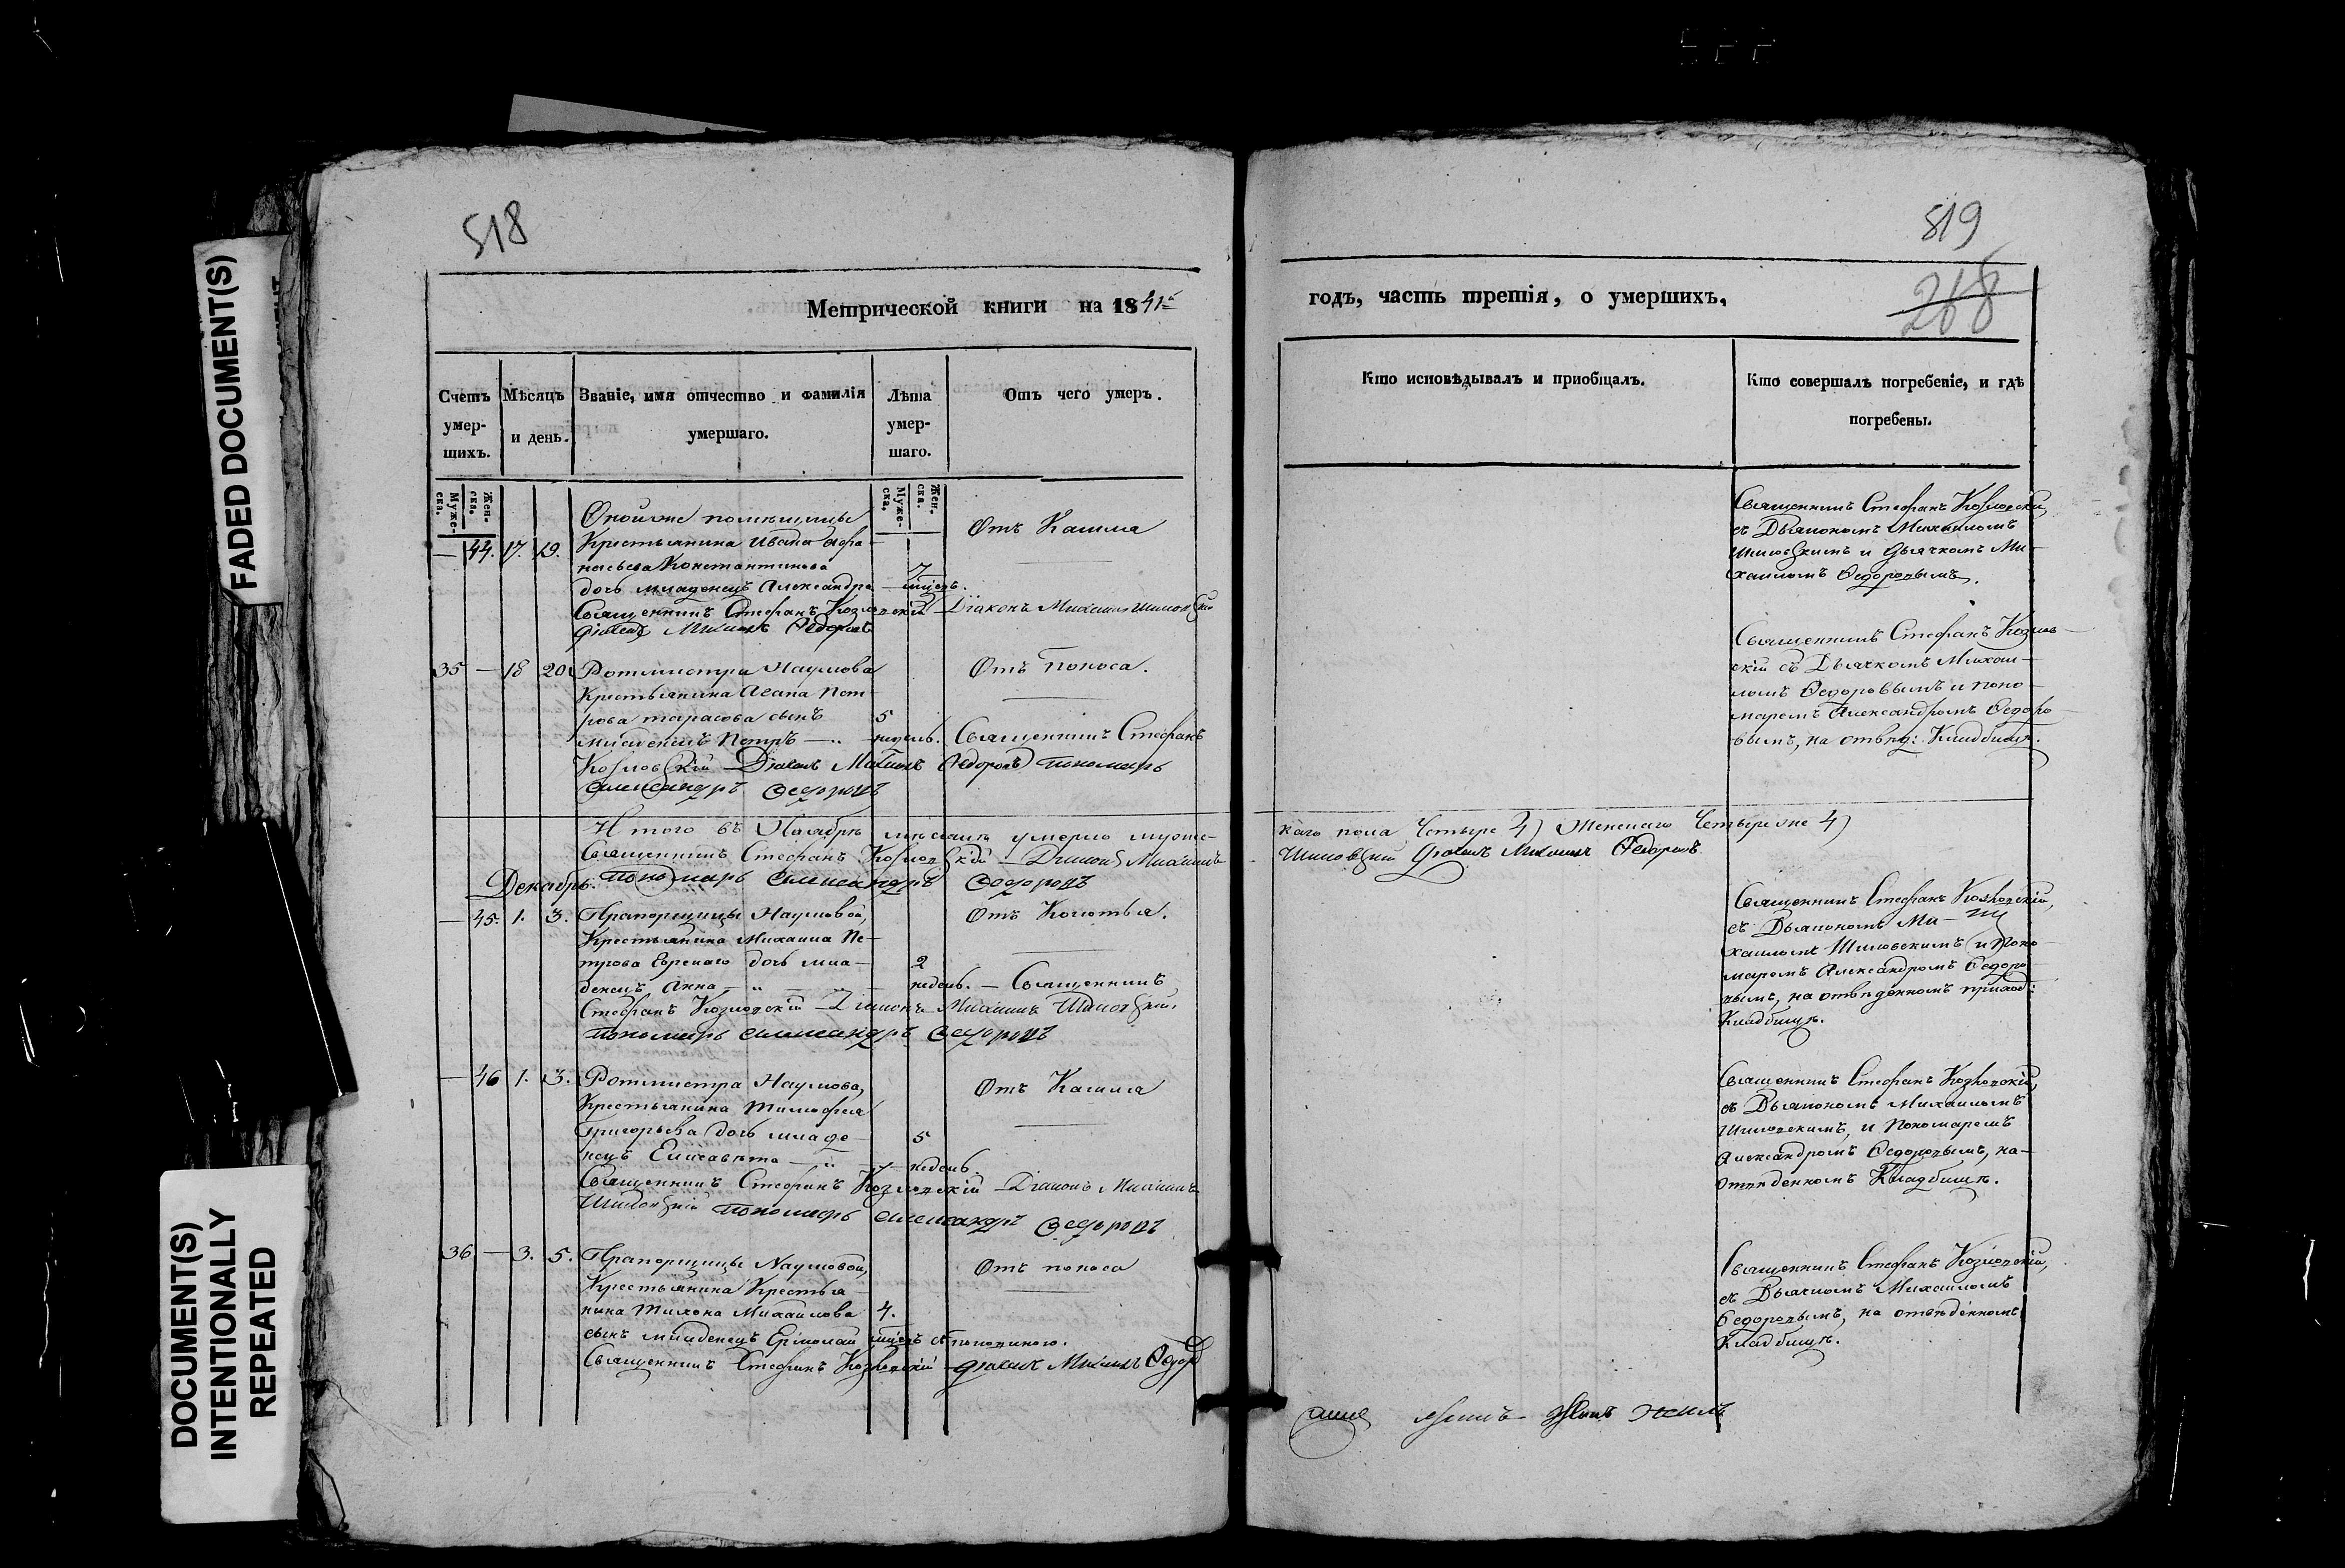 FADED DOCUMENT(S)
DOCUMENT(S)
INTENTIONALLY
REPEATED
518
Метрической книги на 1841й
Счетъ умер- шихъ.
Мѣсяцъ и день.
Званіе, имя отчество и фамилія умершаго.
Лѣта умер- шаго.
Отъ чего умеръ.
Муже- ска.
Жен- ска.
Муже- ска.
Жен- ска.
— 44. 17. 19.
Крестьянина Ивана Афа-
насьева Константинова
дочь младенецъ Александра — 7 мѣсяц.
Отъ Кашля
Священникъ Стефанъ Козловскій Діаконъ Михаилъ
Михаилъ Федоровъ
35 — 18 20.
Ротмистра Наумова
Крестьянина
Пет-
рова Тарасова сынъ
младенецъ Петръ — 5 недель.
Отъ Поноса.
Священникъ Стефанъ
Козловскій Михаилъ Федоровъ пономарь
Александръ Федоровъ
Итого въ Ноябрѣ мѣсяцѣ умерло муже-
Священникъ Стефанъ Козловскій Діаконъ Михаилъ
Декабрь. Пономарь Александръ Федоровъ
— 45. 1. 3.
Прапорщицы Наумовой,
Крестьянина Михаила Пе-
трова дочь мла-
денецъ Анна — 2 недель.
Отъ Колотья.
— Священникъ
Стефанъ Козловскій Діаконъ Михаилъ
пономарь Александръ Федоровъ
— 46 1. 3.
Ротмистра Наумова,
Крестьянина Тимофея
Григорьева дочь младе-
нецъ Елисавета — 5 недель.
Отъ Кашля
Священникъ Стефанъ Козловскій Діаконъ Михаилъ
пономарь Александръ Федоровъ
36 — 3. 5.
Прапорщицы Наумовой,
Крестьянина Крестья-
нина Тихона Михайлова
сынъ младенецъ Ермолай 4. мѣсц. съ половиною.
Отъ поноса
Священникъ Стефанъ Козловскій Михаилъ
519
268
годъ, часть третія, о умершихъ,
Кто исповѣдывалъ и приобщалъ.
Кто совершалъ погребеніе, и гдѣ
погребены.
Священникъ Стефанъ Козловскій,
съ Дьякономъ Михаиломъ
и дьячкомъ Ми-
хаиломъ Федоровымъ.
Священникъ Стефанъ Козлов-
скій съ Дьячкомъ Михаи-
ломъ Федоровымъ и поно-
маремъ Александромъ Федоро-
вымъ, на отвед: Кладбищѣ.
каго пола Четыре 4) Женскаго Четыре же 4)
Михаилъ Федоровъ
Священникъ Стефанъ Козловскій,
съ Дьякономъ Ми-
хаиломъ и Поно-
маремъ Александромъ Федоро-
вымъ, на отведенномъ приход:
Кладбищѣ.
Священникъ Стефанъ Козловскій,
съ Дьякономъ Михаиломъ
и Пономаремъ
Александромъ Федоровымъ, на-
отведенномъ Кладбищѣ.
Священникъ Стефанъ Козловскій,
съ Дьячкомъ Михаиломъ
Федоровымъ, на отведенномъ
Кладбищѣ.